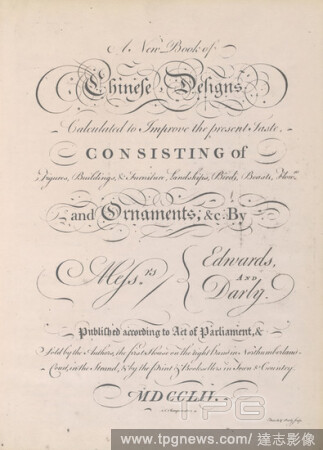 A New Book of
Chinese Designs
Calculated to Improve the present Taste,
CONSISTING of
Figures, Buildings, & Furniture, Landskips, Birds, Beasts, Flowrs.
and Ornaments, &c. By
Messrs. Edwards,
AND
Darly.
Published according to Act of Parliament, &
Sold by the Authors, the first House on the right hand in Northumberland
Court, in the Strand, & by the Print & Booksellers in Town & Country.
MDCCLIV.
TPG
www.tpgnews.com/ 達志影像